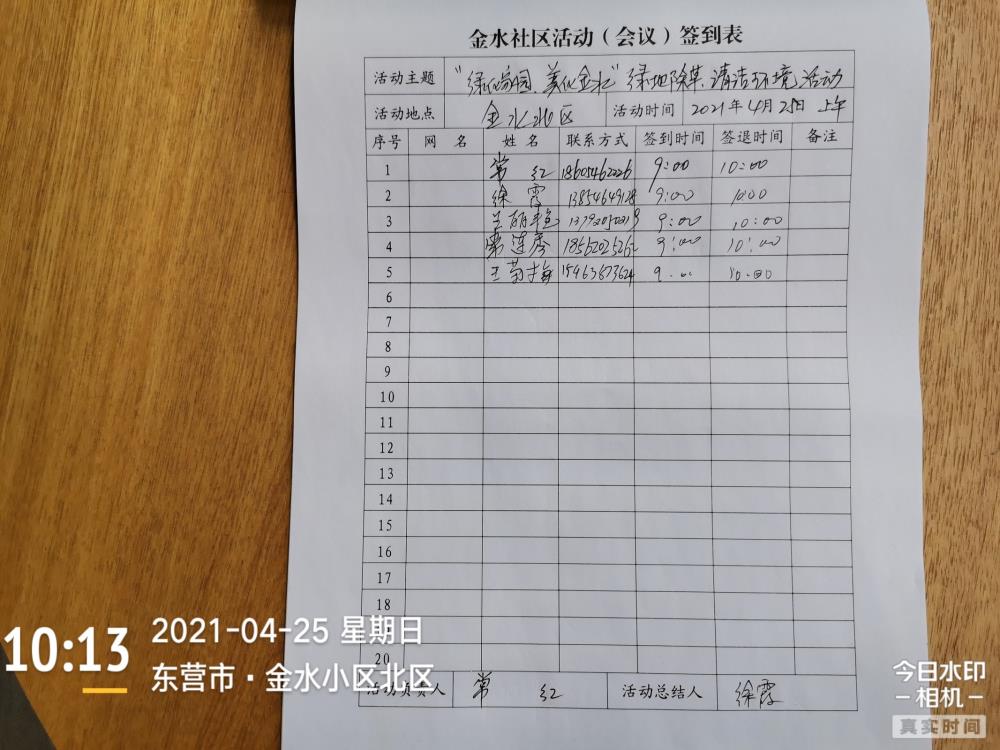 金水社区活动（会议）签到表
活动主题 "绿化家园、美化金水"绿地除草、清洁环境活动
活动地点 金水北区 活动时间 2021年4月25日 上午
序号 网 名 姓 名 联系方式 签到时间 签退时间 备注
1 常 红 18605462226 9:00 10:00
2 徐 霞 13854649128 9:00 10:00
3 9:00 10:00
4 常连秀 9:00 10:00
5 王菊梅 15463573624 9:00 10:00
6
7
8
9
10
11
12
13
14
15
16
17
18
20
活动负责人 常 红 活动总结人 徐霞
10:13
2021-04-25 星期日
东营市·金水小区北区
今日水印
相机
真实时间